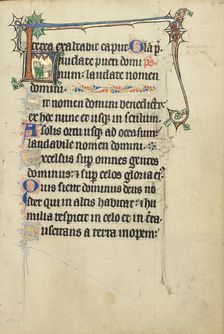 terea exaltabit caput Oīa p̄
laudate pueri domi
num: laudate nomen
domini.
Sit nomen domini benedictū
ex hoc nunc et usq; in seculum
A solis ortu usq; ad occasum:
laudabile nomen domini.
Excelsus sup̄ omnes gentes
dominus: & sup̄ celos gloria ei
Quis sicut dominus deus nos
ter qui in altis habitat: & hu
milia respicit in celo et in t̄ra
Suscitans a terra inopem: